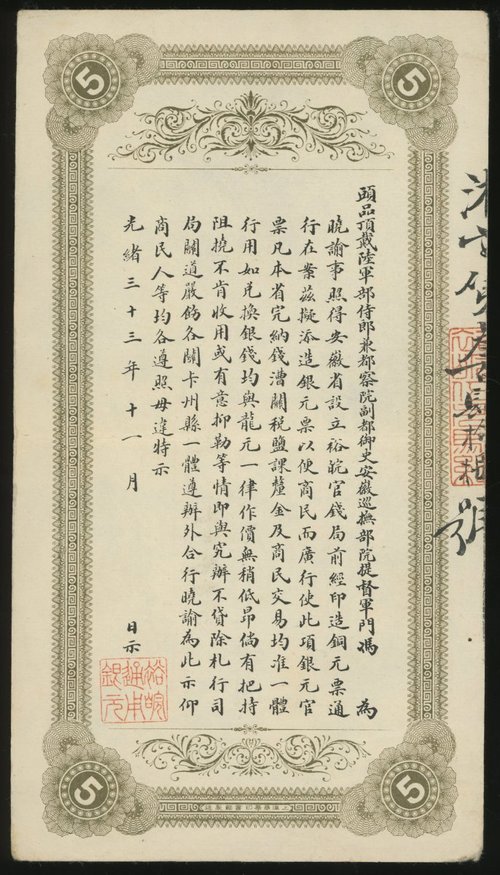 5
5
頭品頂戴陸軍部侍郎兼都察院副都御史安徽巡撫部院提督軍門馮 為
曉諭事照得安徽省設立裕皖官錢局前經印造銅元票通
行在案茲擬添造銀元票以便商民而廣行使此項銀元官
票凡本省完納錢漕關税鹽課釐金及商民交易均准一體
行用如兑換銀錢均與龍元一律作價無稍低昂倘有把持
阻撓不肯收用或有意抑勒等情即與究辦不貸除札行司
局關道嚴飭各關卡州縣一體遵辦外合行曉諭為此示仰
商民人等均各遵照毋違特示
光緒三十三年十一月 日示
裕皖
通用
銀元
5
5